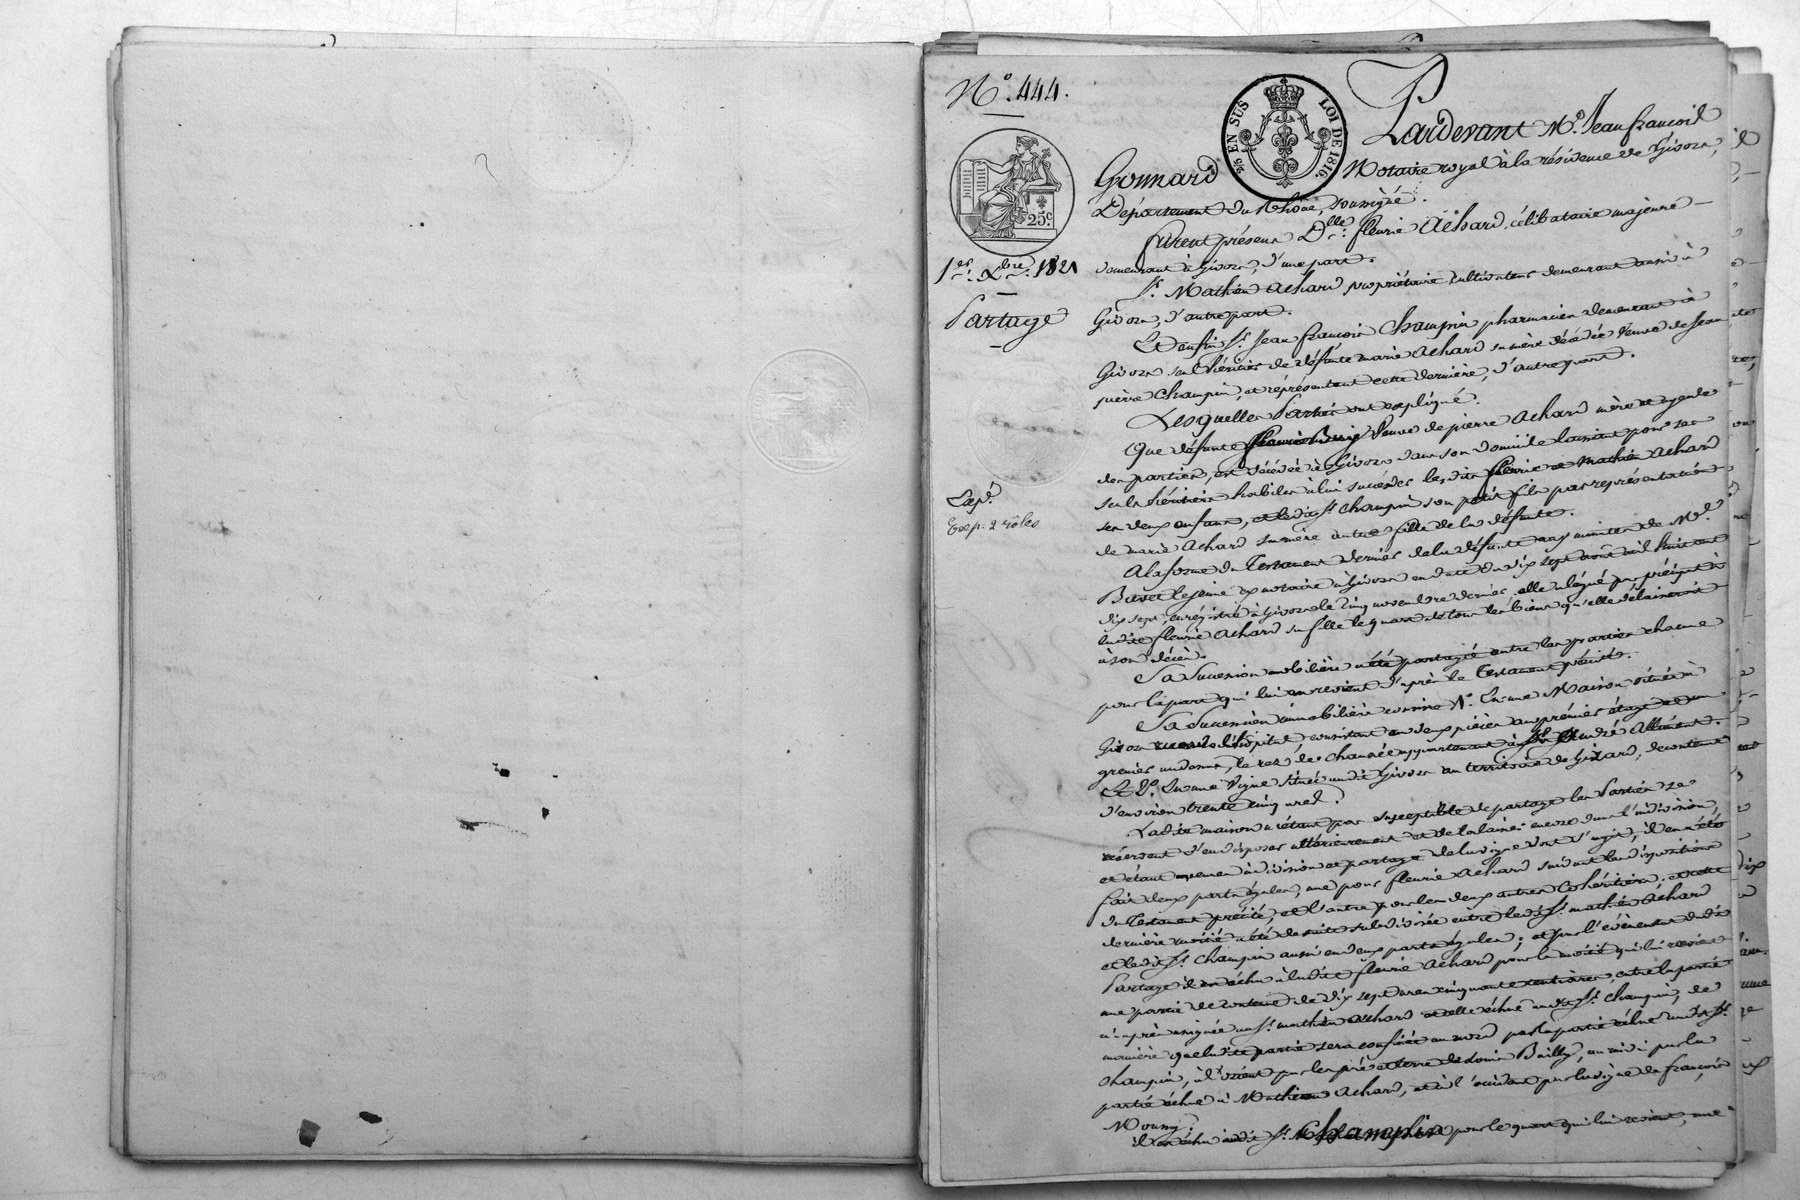 N.° 444.
2/5 EN SUS LOI DE 1816.
25c
1er. Xbre. 1821
Partage
Expé.
Exp: 2 rôles
Pardevant Me. Jean françois
Gonnard Notaire royal à la résidence de Givors,
Département du Rhône, soussigné.
furent présens Dlle. fleurie Achard, célibataire majeure
demeurant à Givors, d'une part.
Sr. Mathieu Achard propriétaire cultivateur demeurant aussi à
Givors, d'autre part.
Et enfin Sr. Jean françois Champin pharmacien demeurant à
Givors seul héritier de défunte marie Achard sa mère décédée Veuve de Jean
pierre Champin, et représentant cette dernière, d'autre part.
Lesquelles Parties ont expliqué.
Que défunte Veuve de pierre Achard mère et ayeule
des parties, est décédée à Givors dans son domicile laissant pour ses
seuls héritiers habiles à lui succéder lesdits fleurie et Mathieu Achard
ses deux enfans, et ledit Sr. Champin son petit fils par représentation
de marie Achard sa mère autre fille de la défunte.
A la forme du Testament dernier de la défunte aux minutes de Me.
le jeune ex notaire à Givors en date du dix sept août mil huit cent
dix sept, enrégistré à Givors le cinq novembre dernier, elle a légué par préciput à
ladite fleurie Achard sa fille le quart de tous les biens qu'elle délaisseroit
à son décès.
Sa Succession mobilière a été partagée entre les parties chacune
pour la part qui lui en revient d'après le Testament précité.
Sa Succession immobilière consiste 1°. En une Maison située à
Givors consistant en deux pièces au premier étage et un
grenier au dessus, le rez de chaussée appartenant à André
Et 2°. En une Vigne située audit Givors au territoire de Gizard, de contenue
d'environ trente cinq ares.
Ladite maison n'étant pas susceptible de partage les Parties se
réservent d'en disposer ultérieurement et de la laisser encore dans l'indivision,
et étant venues à division et partage de la vigne dont s'agit, il en a été
fait deux parts égales, une pour fleurie Achard suivant les dispositions
du Testament précité, et l'autre pour les deux autres Cohéritiers, et cette
dernière moitié a été de suite subdivisée entre ledit Sr. mathieu Achard
et ledit Sr. Champin aussi en deux parts égales; et par l'événement dudit
Partage il est échu à ladite fleurie Achard pour la moitié qui lui revient
une partie de contenue de dix sept ares cinquante centiares, entre la partie
ci après assignée au Sr. mathieu Achard et celle échue audit Sr. Champin, de
manière que ladite partie sera confinée au nord par la partie échue audit Sr.
Champin, à l'orient par les pré et terre de Louis Bailly, au midi par la
partie échue à Mathieu Achard, et à l'occident par la vigne de françois
Mouny.
il est échu audit Sr. Champin pour le quart qui lui revient, une